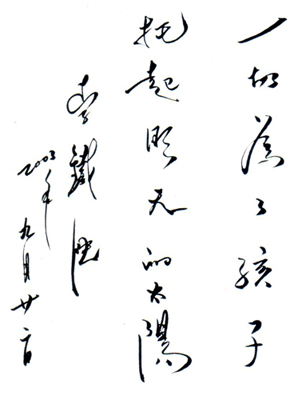 一切為了孩子
托起明天的太陽
李鐵映
2003年九月廿日